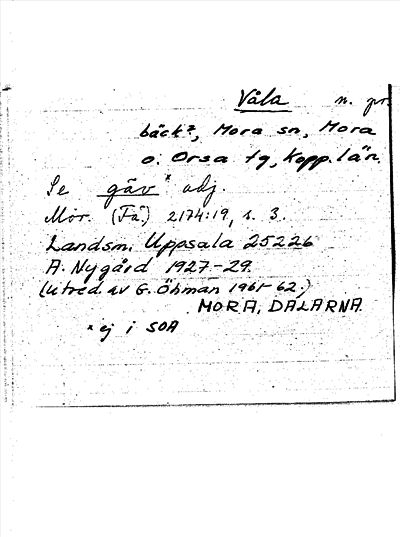 Våla n. pr.
bäck?, Mora sn, Mora
o. Orsa tg, Kopp. län.
Se gäv* adj.
Mor. (Få) 2174:19, s. 3.
Landsm. Uppsala 25226
A. Nygård 1927-29.
(utred. av G. Öhman 1961-62.)
MORA, DALARNA.
* ej i SOA